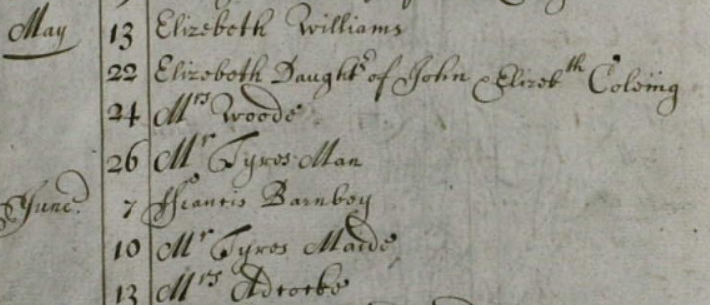 May 13 Elizebeth Williams
22 Elizebeth Daughtr of John & Elizebth Coleing
24 Mrs Woode
26 Mr Tyres Man
June 7 ffrancis Barnbey
10 Mr Tyres Maide
13 Mrs